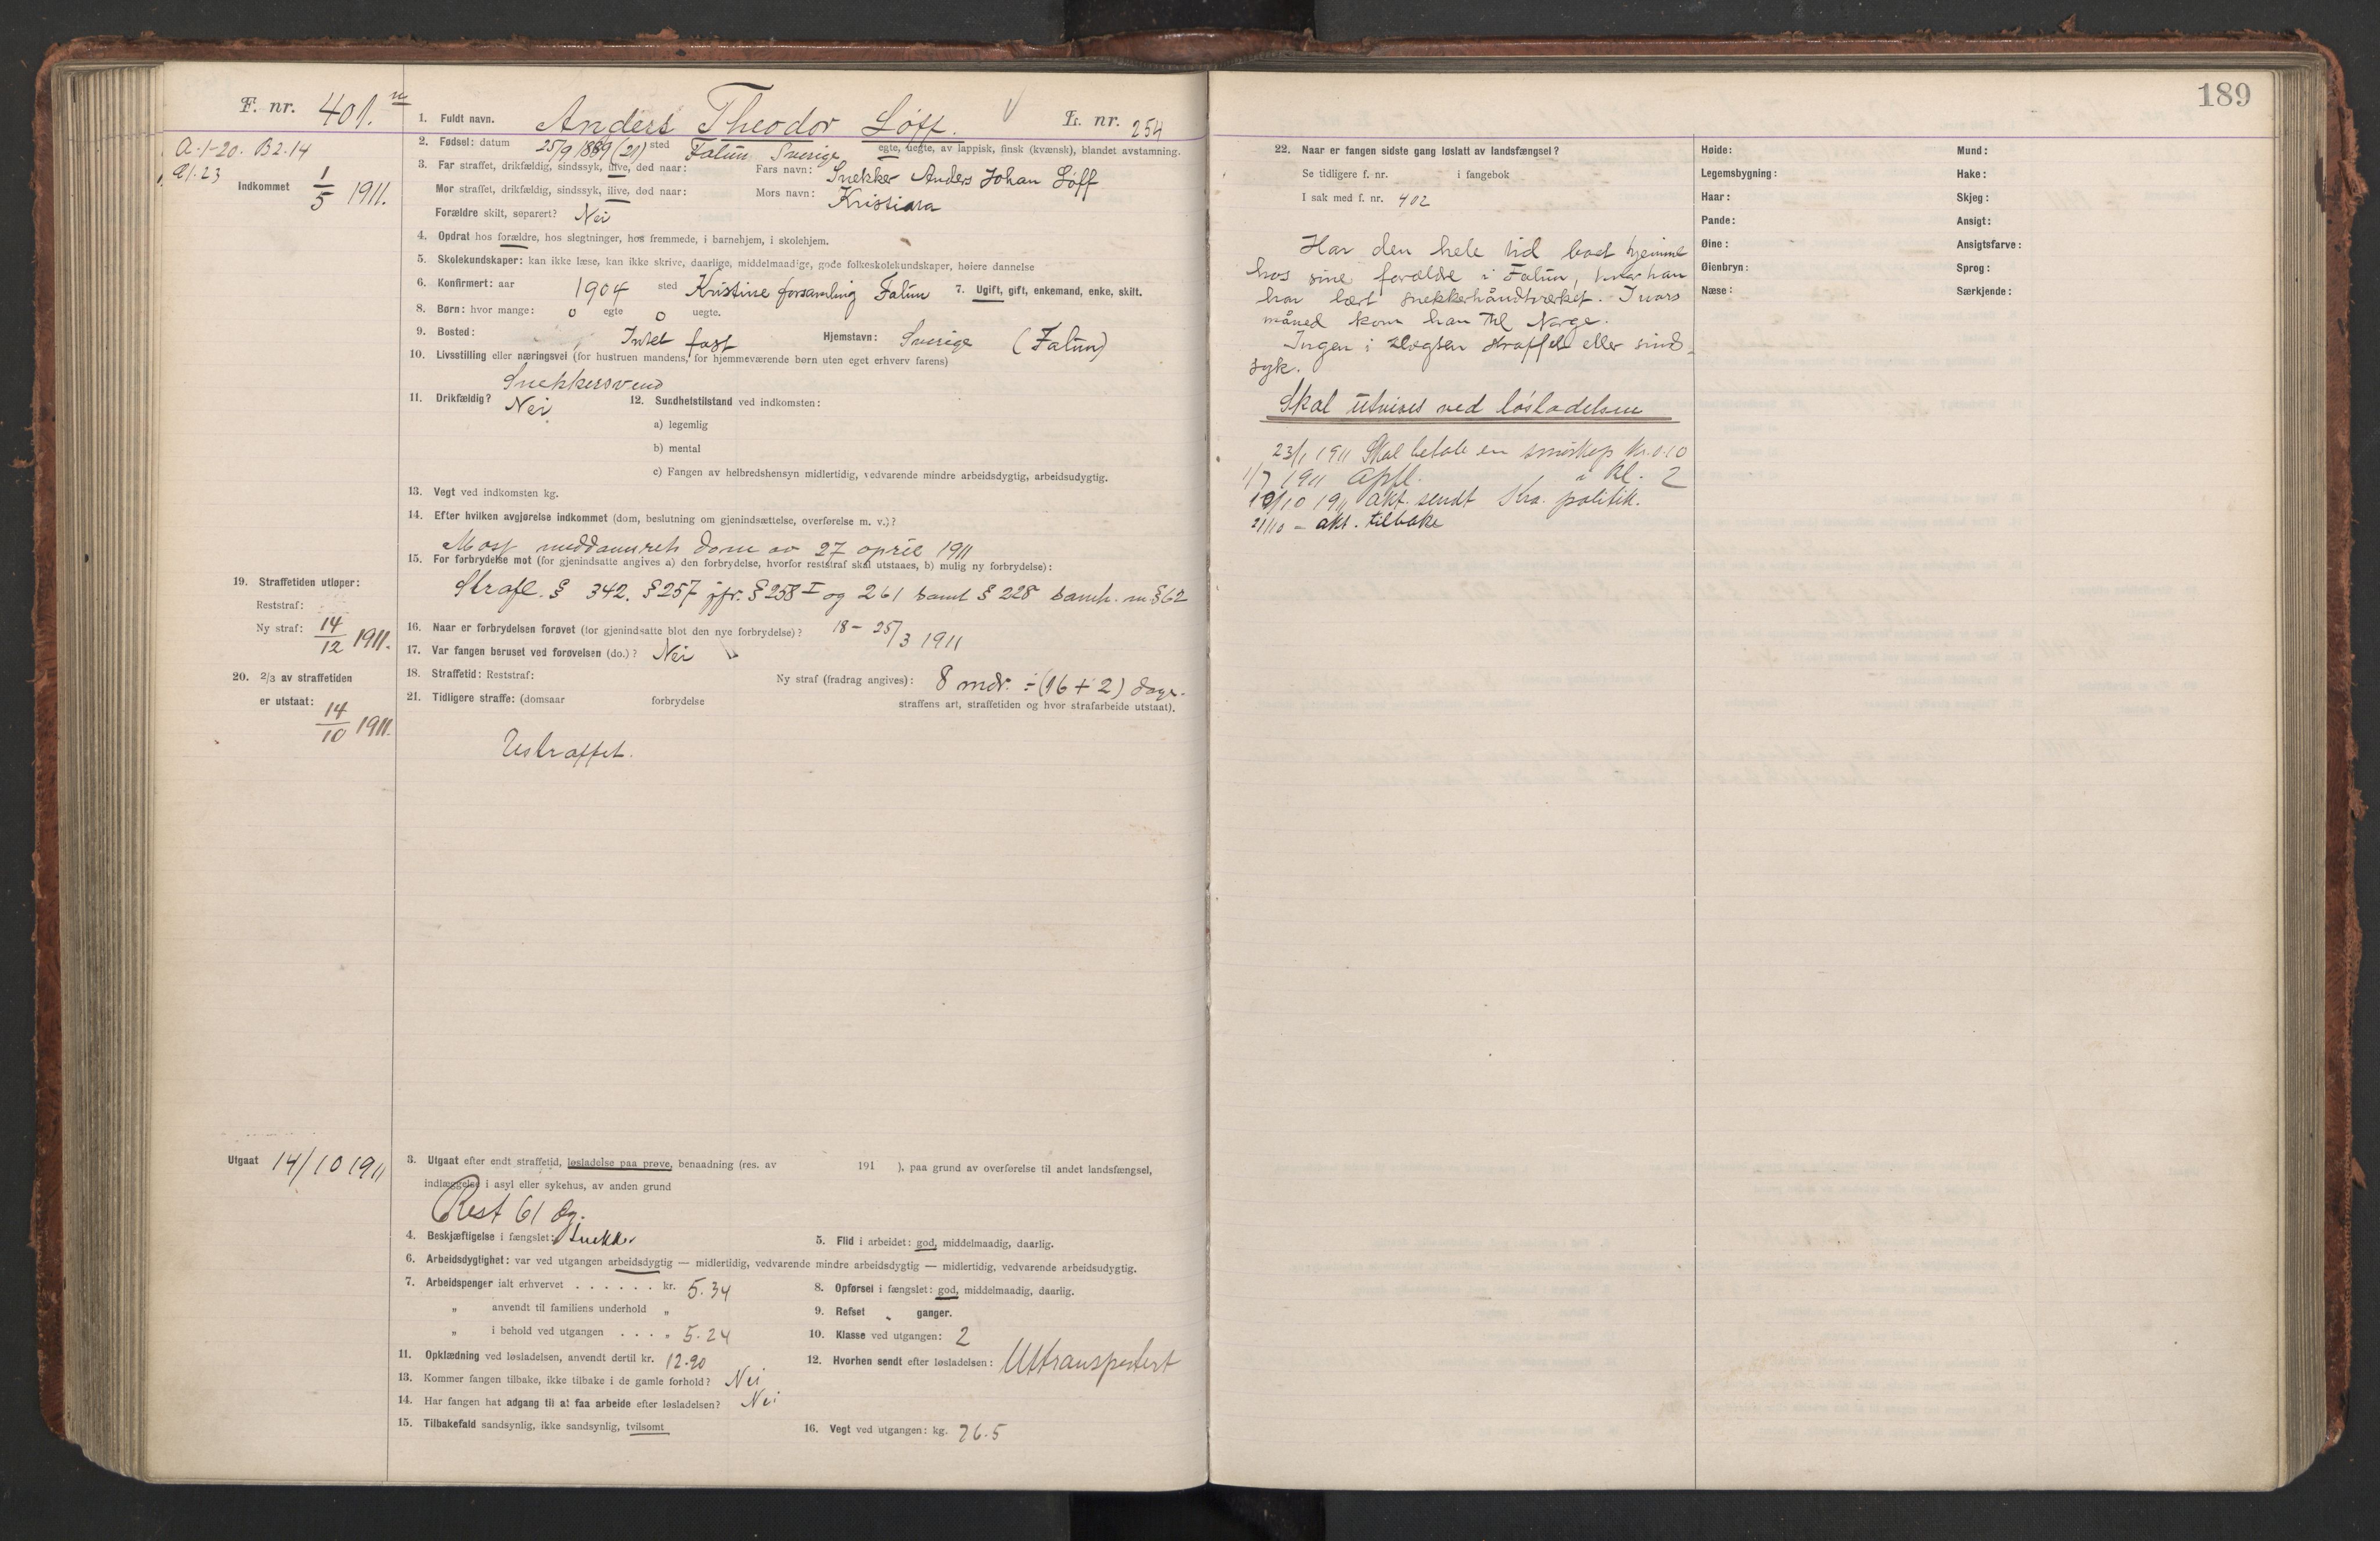 F. nr. 401. n
A. 1-20. B 2.14
A1.23
Indkommet 1/5 1911.
1. Fuldt navn. Anders Theodor Løff. L. nr. 254
2. Fødsel: datum 25/9 1889 (21) sted Falun Sverige egte, uegte, av lappisk, finsk (kvænsk), blandet avstamning.
3. Far straffet, drikfældig, sindssyk, ilive, død naar: Fars navn: Snekker Anders Johan Løff
Mor straffet, drikfældig, sindssyk, ilive, død naar: Mors navn: Kristiara
Forældre skilt, separert? Nei
4. Opdrat hos forældre, hos slegtninger, hos fremmede, i barnehjem, i skolehjem.
5. Skolekundskaper: kan ikke læse, kan ikke skrive, daarlige, middelmaadige, gode folkeskolekundskaper, høiere dannelse
6. Konfirmert: aar 1904 sted Kristine forsamling Falun 7. Ugift, gift, enkemand, enke, skilt.
8. Børn: hvor mange: 0 egte 0 uegte.
9. Bosted: Intet fast Hjemstavn: Sverige (Falun)
10. Livsstilling eller næringsvei (for hustruen mandens, for hjemmeværende børn uten eget erhverv farens)
Snekkersvend
11. Drikfældig? Nei 12. Sundhetstilstand ved indkomsten:
a) legemlig
b) mental
c) Fangen av helbredshensyn midlertidig, vedvarende mindre arbeidsdygtig, arbeidsudygtig.
13. Vegt ved indkomsten kg.
14. Efter hvilken avgjørelse indkommet (dom, beslutning om gjenindsættelse, overførelse m. v.)?
Moss meddomsrets dom av 27 april 1911
15. For forbrydelse mot (for gjenindsatte angives a) den forbrydelse, hvorfor reststraf skal utstaaes, b) mulig ny forbrydelse):
Strafl. § 342. § 257 jfr. § 258 I og 261 samt § 228 samh. m § 62
16. Naar er forbrydelsen forøvet (for gjenindsatte blot den nye forbrydelse)? 18 - 25/3 1911
17. Var fangen beruset ved forøvelsen (do.)? Nei
18. Straffetid: Reststraf: Ny straf (fradrag angives): 8 mdr. ÷ (16 + 2) dage.
19. Straffetiden utløper:
Reststraf:
Ny straf: 14/12 1911.
20. 2/3 av straffetiden
er utstaat: 14/10 1911.
21. Tidligere straffe: (domsaar forbrydelse straffens art, straffetiden og hvor strafarbeide utstaat).
Ustraffet.
Utgaat 14/10 1911
3. Utgaat efter endt straffetid, løsladelse paa prøve, benaadning (res. av 191 ), paa grund av overførelse til andet landsfængsel,
indlæggelse i asyl eller sykehus, av anden grund
Rest 61 dg.
4. Beskjæftigelse i fængslet: Snekker 5. Flid i arbeidet: god, middelmaadig, daarlig.
6. Arbeidsdygtighet: var ved utgangen arbeidsdygtig — midlertidig, vedvarende mindre arbeidsdygtig — midlertidig, vedvarende arbeidsudygtig.
7. Arbeidspenger ialt erhvervet . . . . . . kr. 5.34 8. Opførsel i fængslet: god, middelmaadig, daarlig.
„ anvendt til familiens underhold „ 9. Refset „ ganger.
„ i behold ved utgangen . . . . „ 5.24 10. Klasse ved utgangen: 2
11. Opklædning ved løsladelsen, anvendt dertil kr. 12.90 12. Hvorhen sendt efter løsladelsen: Uttransportert
13. Kommer fangen tilbake, ikke tilbake i de gamle forhold? Nei
14. Har fangen hat adgang til at faa arbeide efter løsladelsen? Nei
15. Tilbakefald sandsynlig, ikke sandsynlig, tvilsomt 16. Vegt ved utgangen: kg. 76.5
189
22. Naar er fangen sidste gang løslatt av landsfængsel?
Se tidligere f. nr. i fangebok
I sak med f. nr. 402
Har den hele tid boet hjemme
hos sine forældre i Falun, hvor han
har lært snekkerhåndtverket. I mars
måned kom han til Norge.
Ingen i slegten straffet eller sind-
syk.
Skal utvises ved løsladelsen
23/1 1911 Skal betale en smørkop kr. 0.10
1/7 1911 Opfl. i kl. 2
10/10 1911 akt. sendt Kra. politik.
21/10 - akt. tilbake
Høide: Mund:
Legemsbygning: Hake:
Haar: Skjeg:
Pande: Ansigt:
Øine: Ansigtsfarve:
Øienbryn: Sprog:
Næse: Særkjende: